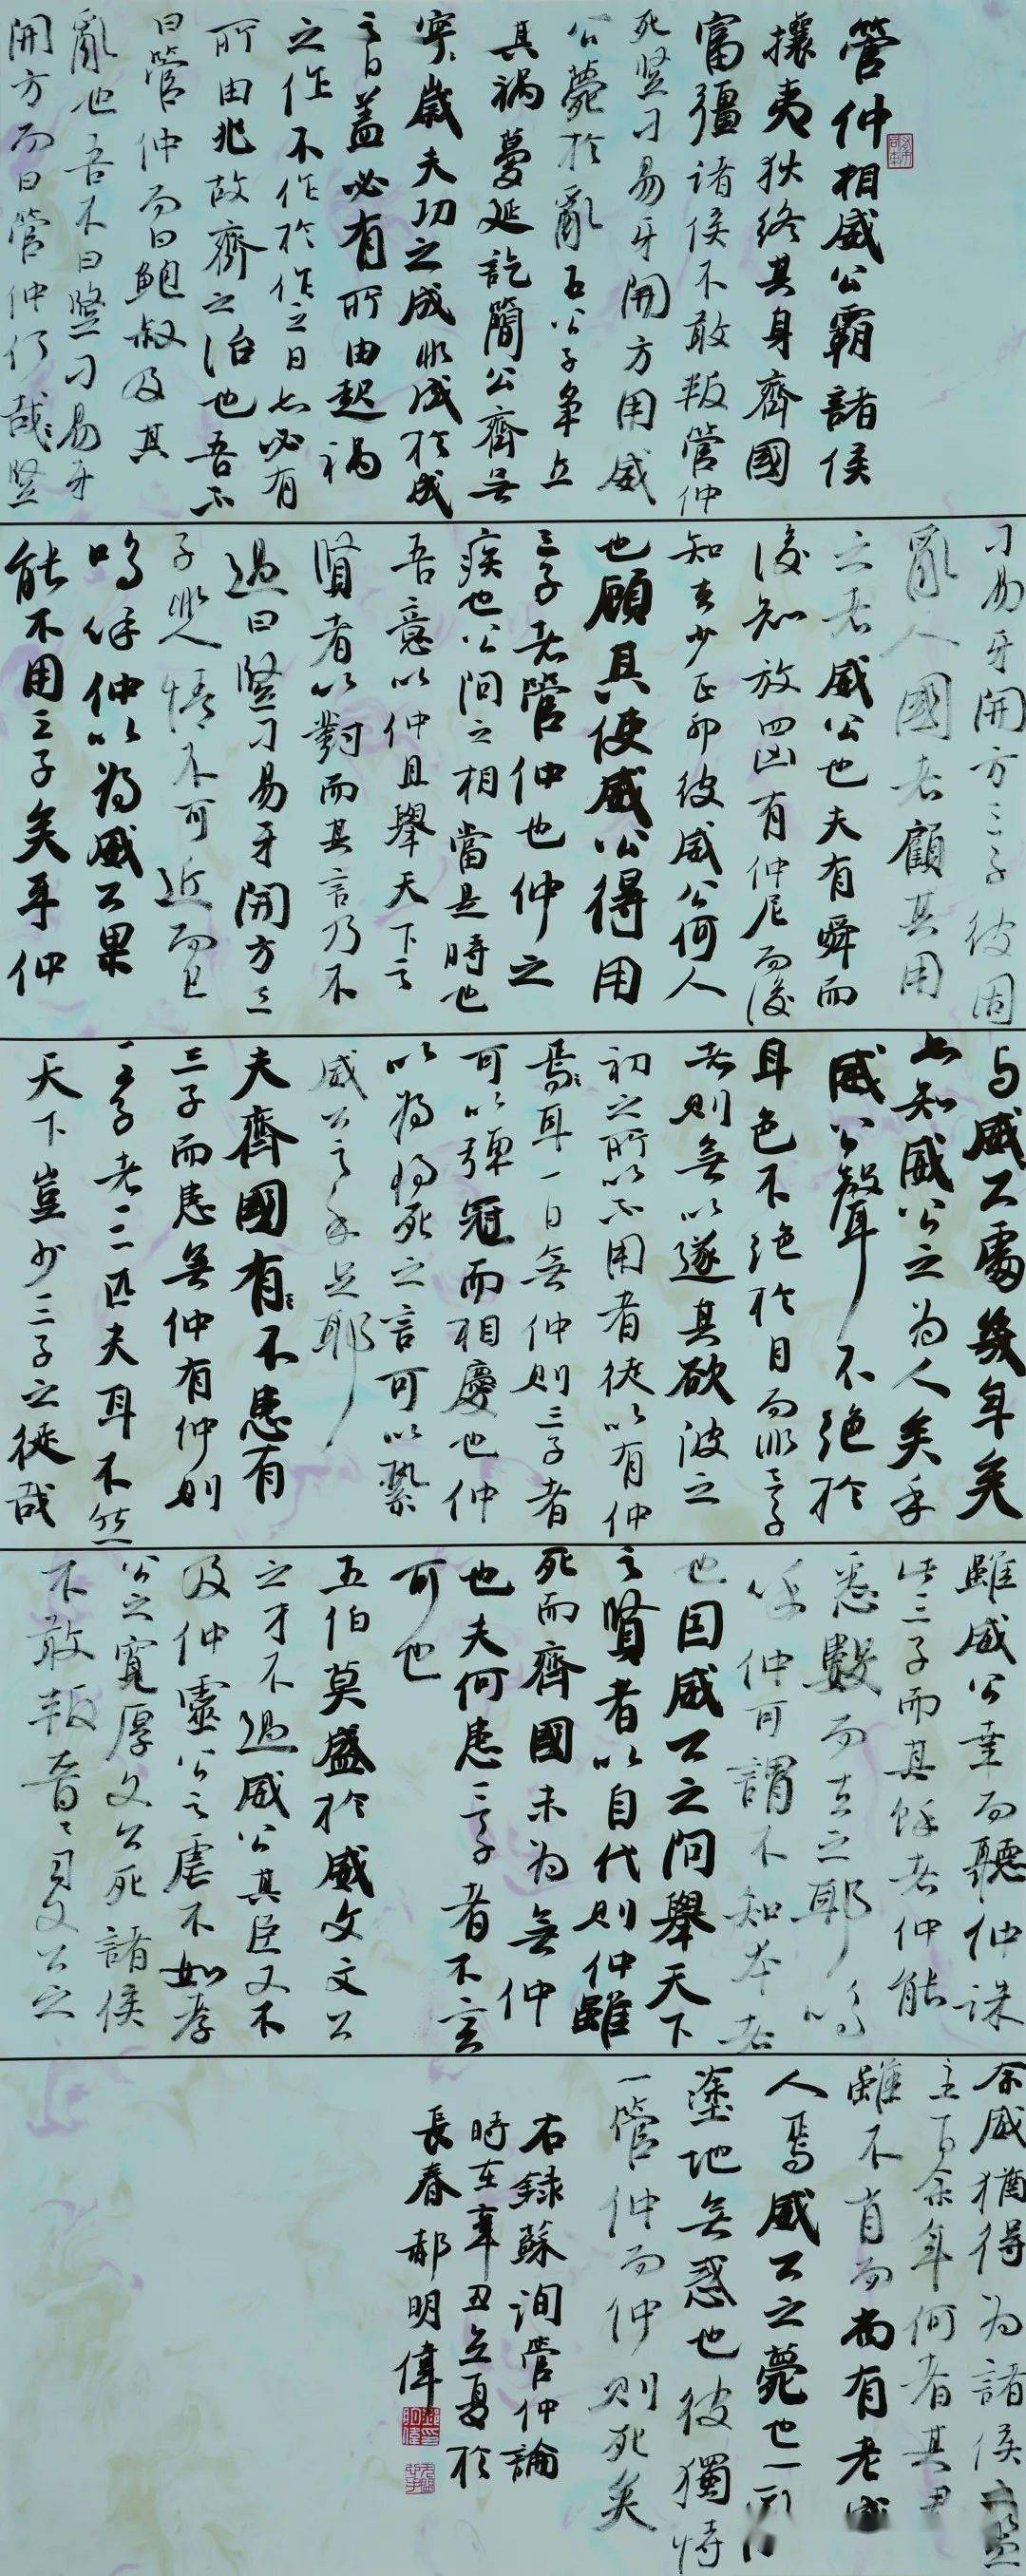 管仲相威公霸諸侯
攘夷狄終其身齊國
富彊诸侯不敢叛管仲
死竖刁易牙開方用威
公薨於亂五公子争立
其祸蔓延訖簡公齊無
寧歲夫功之成非成於成
之日蓋必有所由起祸
之作不作於作之日亦必有
所由兆故齊之治也吾不
曰管仲而曰鮑叔及其
亂也吾不曰竖刁易牙
開方而曰管仲何哉竖
刁易牙開方三子彼固
亂人國者顧其用
之者威公也夫有舜而
後知放四凶有仲尼而後
知去少正卯彼威公何人
也顧其使威公得用
三子者管仲也仲之
疾也公问之相當是時也
吾意以仲且舉天下之
賢者以對而其言乃不
過曰竖刁易牙開方三
子非人情不可近而已
嗚呼仲以為威公果
能不用三子矣乎仲
与威公處幾年矣
亦知威公之为人矣乎
威公聲不绝於
耳色不绝於目而非三子
者则無以遂其欲彼之
初之所以不用者徒以有仲
焉耳一日無仲则三子者
可以弹冠而相慶也仲
以為将死之言可以縶
威公之手足耶
夫齊國有不患有
三子而患無仲有仲则
三子者三匹夫耳不然
天下豈少三子之徒哉
雖威公幸而聽仲诛
此三子而其餘者仲能
悉數而去之耶嗚
呼仲可謂不知本者
也因威公之问舉天下
之賢者以自代则仲雖
死而齊國未为無仲
也夫何患三子者不言
可也
五伯莫盛於威文文公
之才不過威公其臣又不
及仲靈公之虐不如孝
公之寬厚文公死諸侯
不敢叛晋晋習文公之
余威猶得为諸侯之盟
主百余年何者其君
雖不肖而尚有老成
人焉威公之薨也一敗
塗地無惑也彼獨恃
一管仲而仲则死矣
右録蘇洵管仲論
時在辛丑立夏於
長春郝明偉